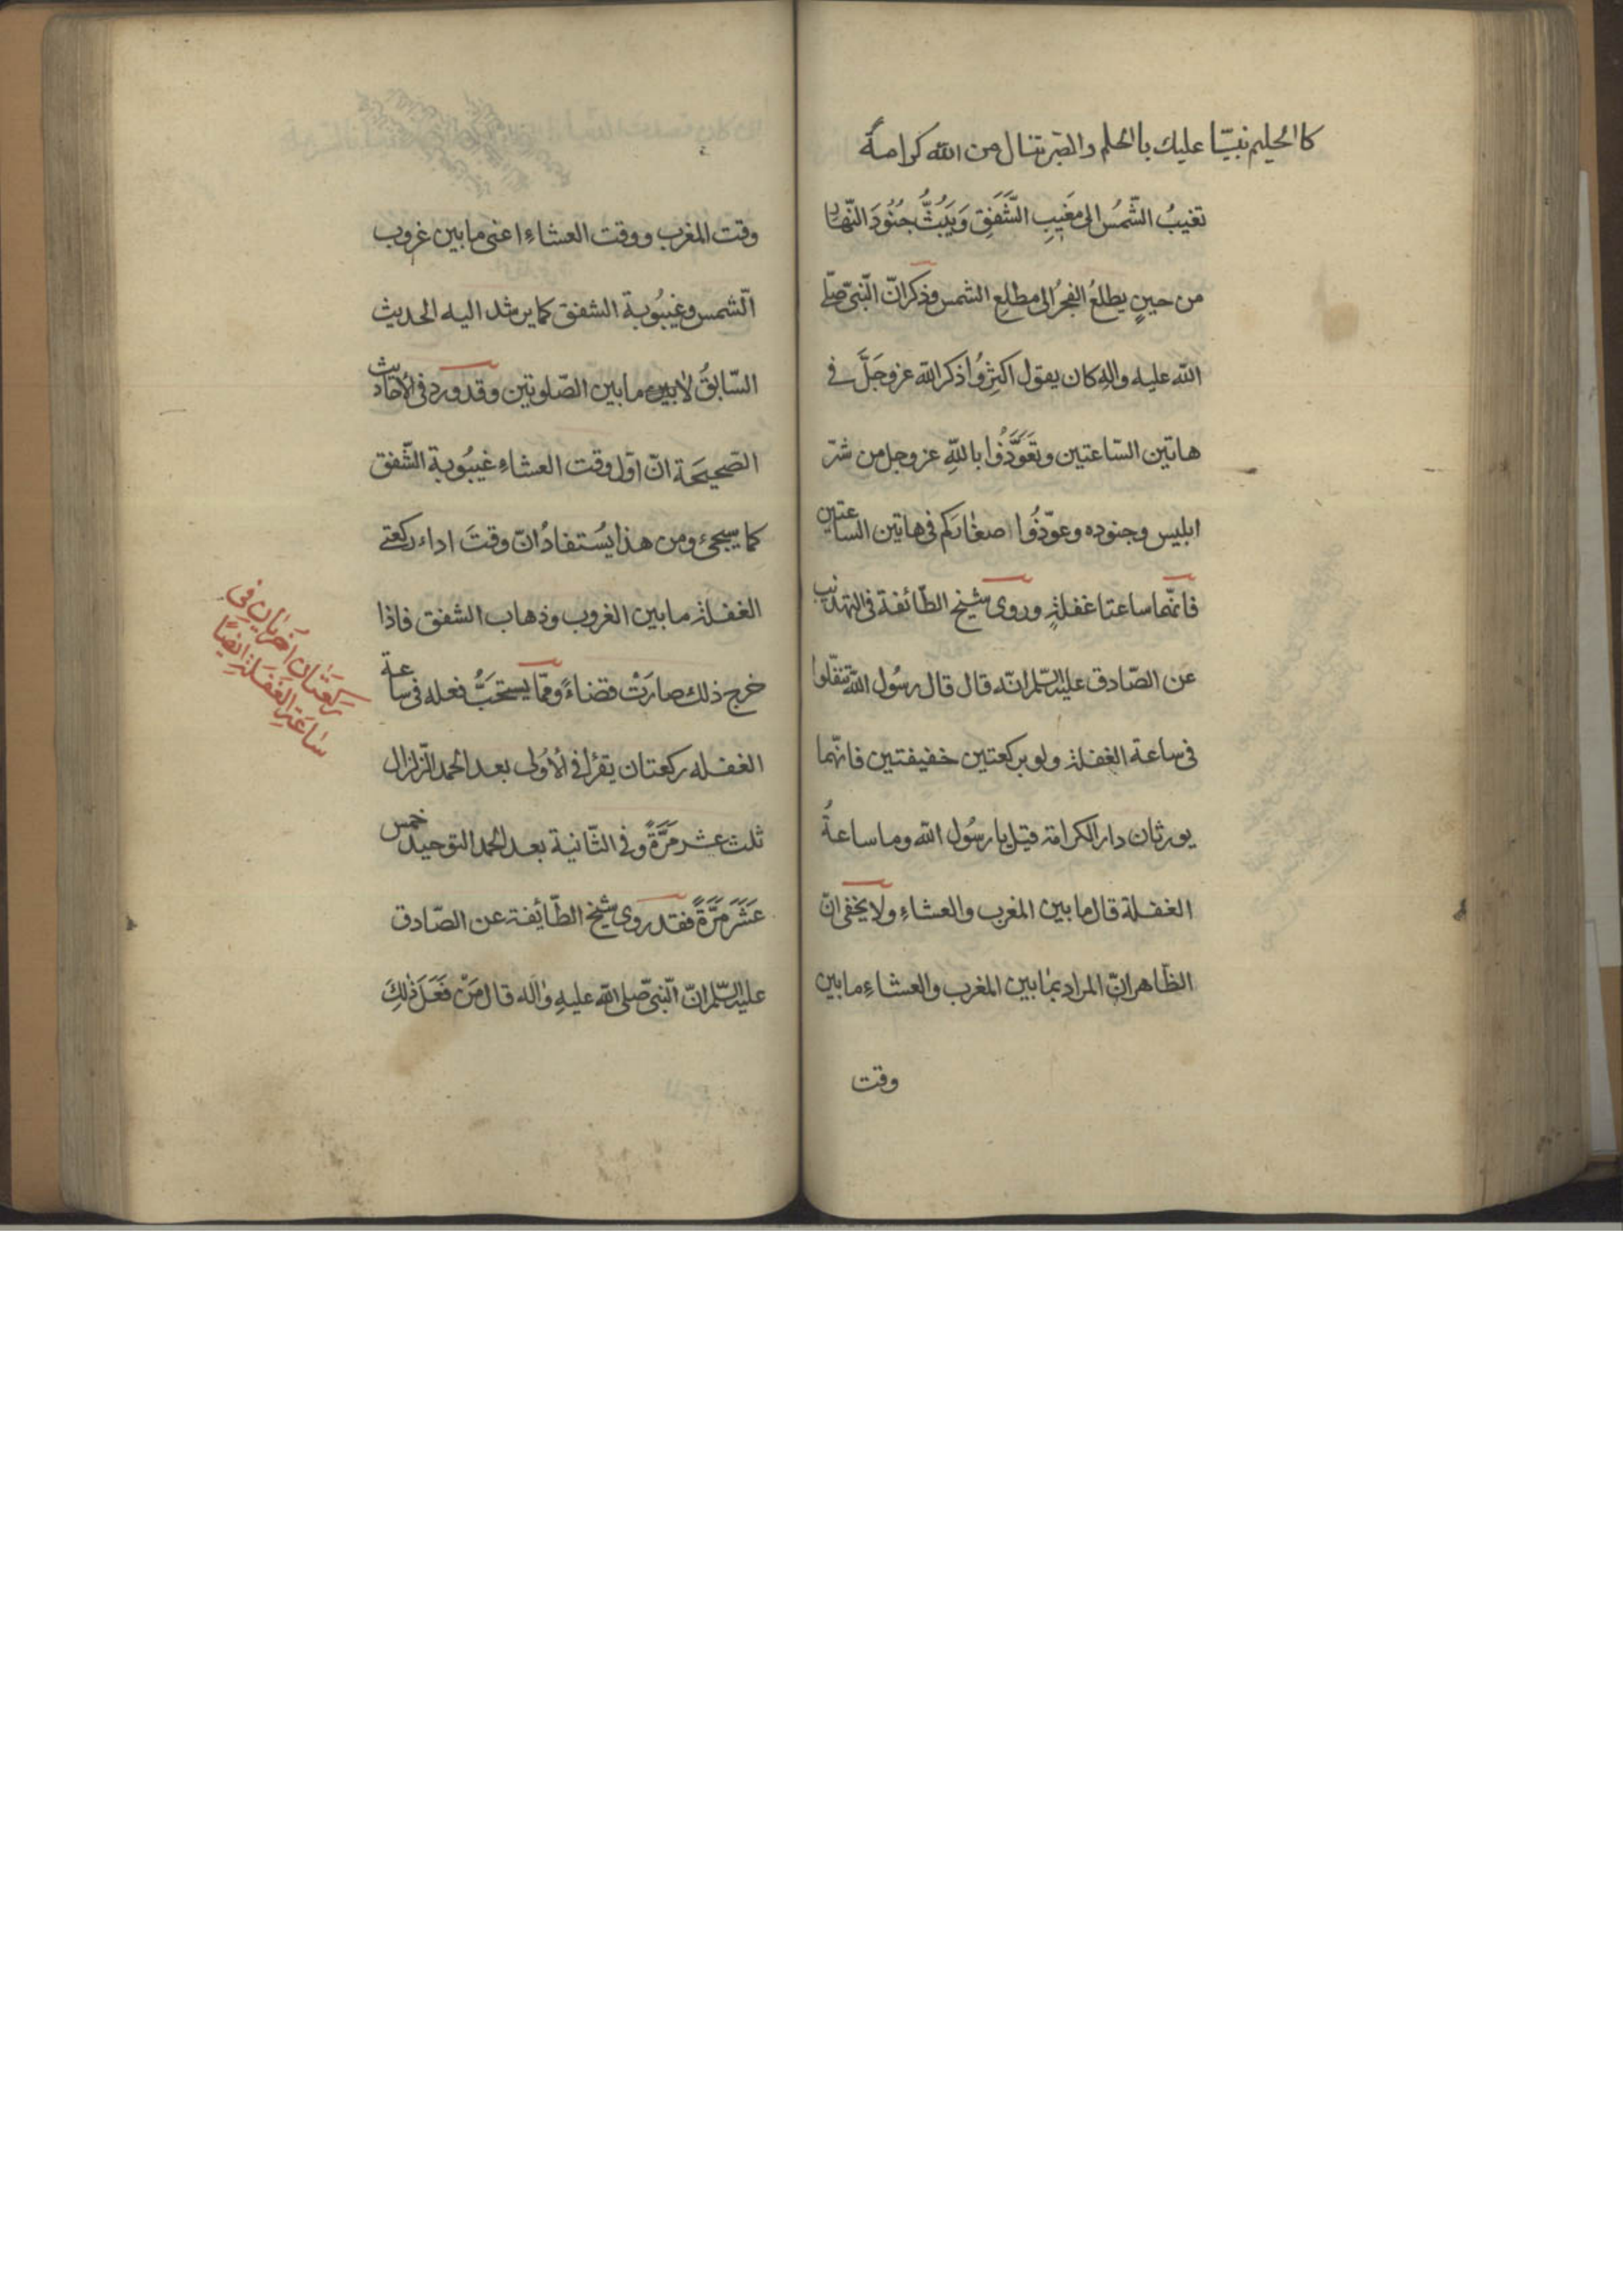 كاالحليم نبيّا عليك بالحلم والصّبر تنال من الله كرامةً
تغيبُ الشّمسُ الى مَغيبِ الشَّفَقِ وَيَبُثُّ جُنُودَ النّهار
من حينٍ يطلعُ الفجرُ الى مطلع الشمس وذكر انّ النّبىّ صلّى
الله عليه واله كان يقول اكثِرُوا ذكر الله عز وجَلَّ فى
هاتين السّاعتين وتَعَوَّذُوا بالله عز وجل من شرّ
ابليس وجنوده وعوّذُوا صغاركم فى هاتين الساعتين
فانّهما ساعتا غفلةٍ وروى شيخ الطّائفة فى التهذيب
عن الصّادق عليه السّلم انّه قال قال رسُول الله تنفّلوا
فى ساعة الغفلة ولو بركعتين خفيفتين فانّهما
يورثان دار الكرامة قيل يا رسُول الله وما ساعةُ
الغفلة قال ما بين المغرب والعشاءِ ولا يخفى انّ
الظّاهر انّ المراد بما بين المغرب والعشاءِ ما بين
وقت
وقت المغرب ووقت العشاءِ اعنى ما بين غروب
الشّمس وغيبُوبة الشفق كما يرشد اليه الحديث
السّابقُ لا بين ما بين الصّلوتين وقد ورد فى الأحاديث
الصّحيحَة انّ اوّل وقت العشاءِ غيبُوبة الشّفق
كما يسيجئ ومن هذا يُستفادُ انّ وقتَ اداء ركعتى
الغفلة ما بين الغروب وذهاب الشفق فاذا
خرج ذلك صارَتْ قضاءً وممّا يستحَبُّ فعله فى ساعة
الغفله ركعتان يقرأ فى الأولى بعد الحمد الزلزال
ثلث عشر مَرَّةً وفى الثّانية بعد الحمد التوحيد خمس
عَشَرَ مَرَّةً فقد روى شيخ الطّائيفة عن الصّادق
عليه السّلم انّ النّبىّ صلى الله عليهِ واله قال مَنْ فَعَلَ ذٰلِكَ
رَكعَتٰانِ اُخرَيٰانِ فى
سٰاعَةِ الغَفلَةِ ايضًا